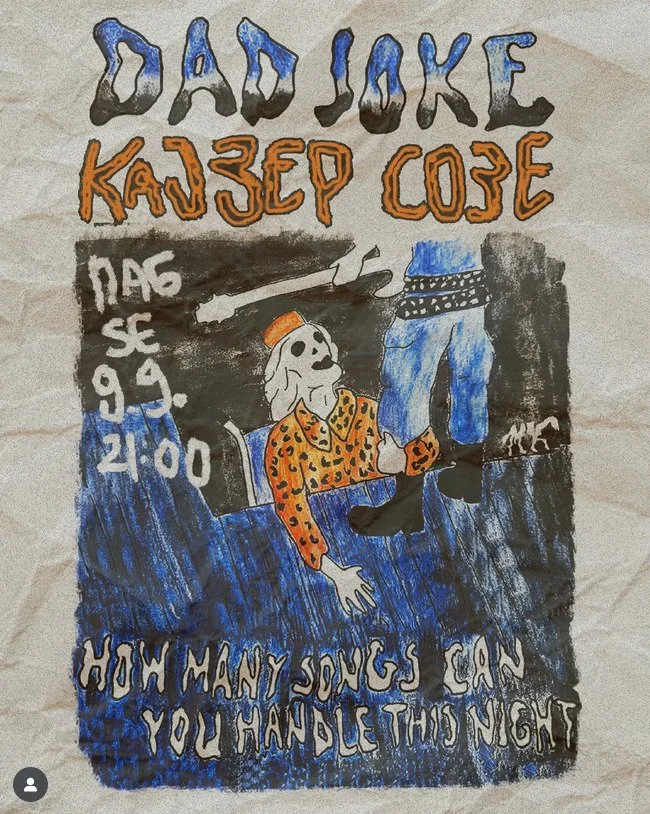 DAD JOKE
КАЈЗЕР СОЗЕ
SE
9.9.
21:00
HOW MANY SONGS CAN
YOU HANDLE THIS NIGHT